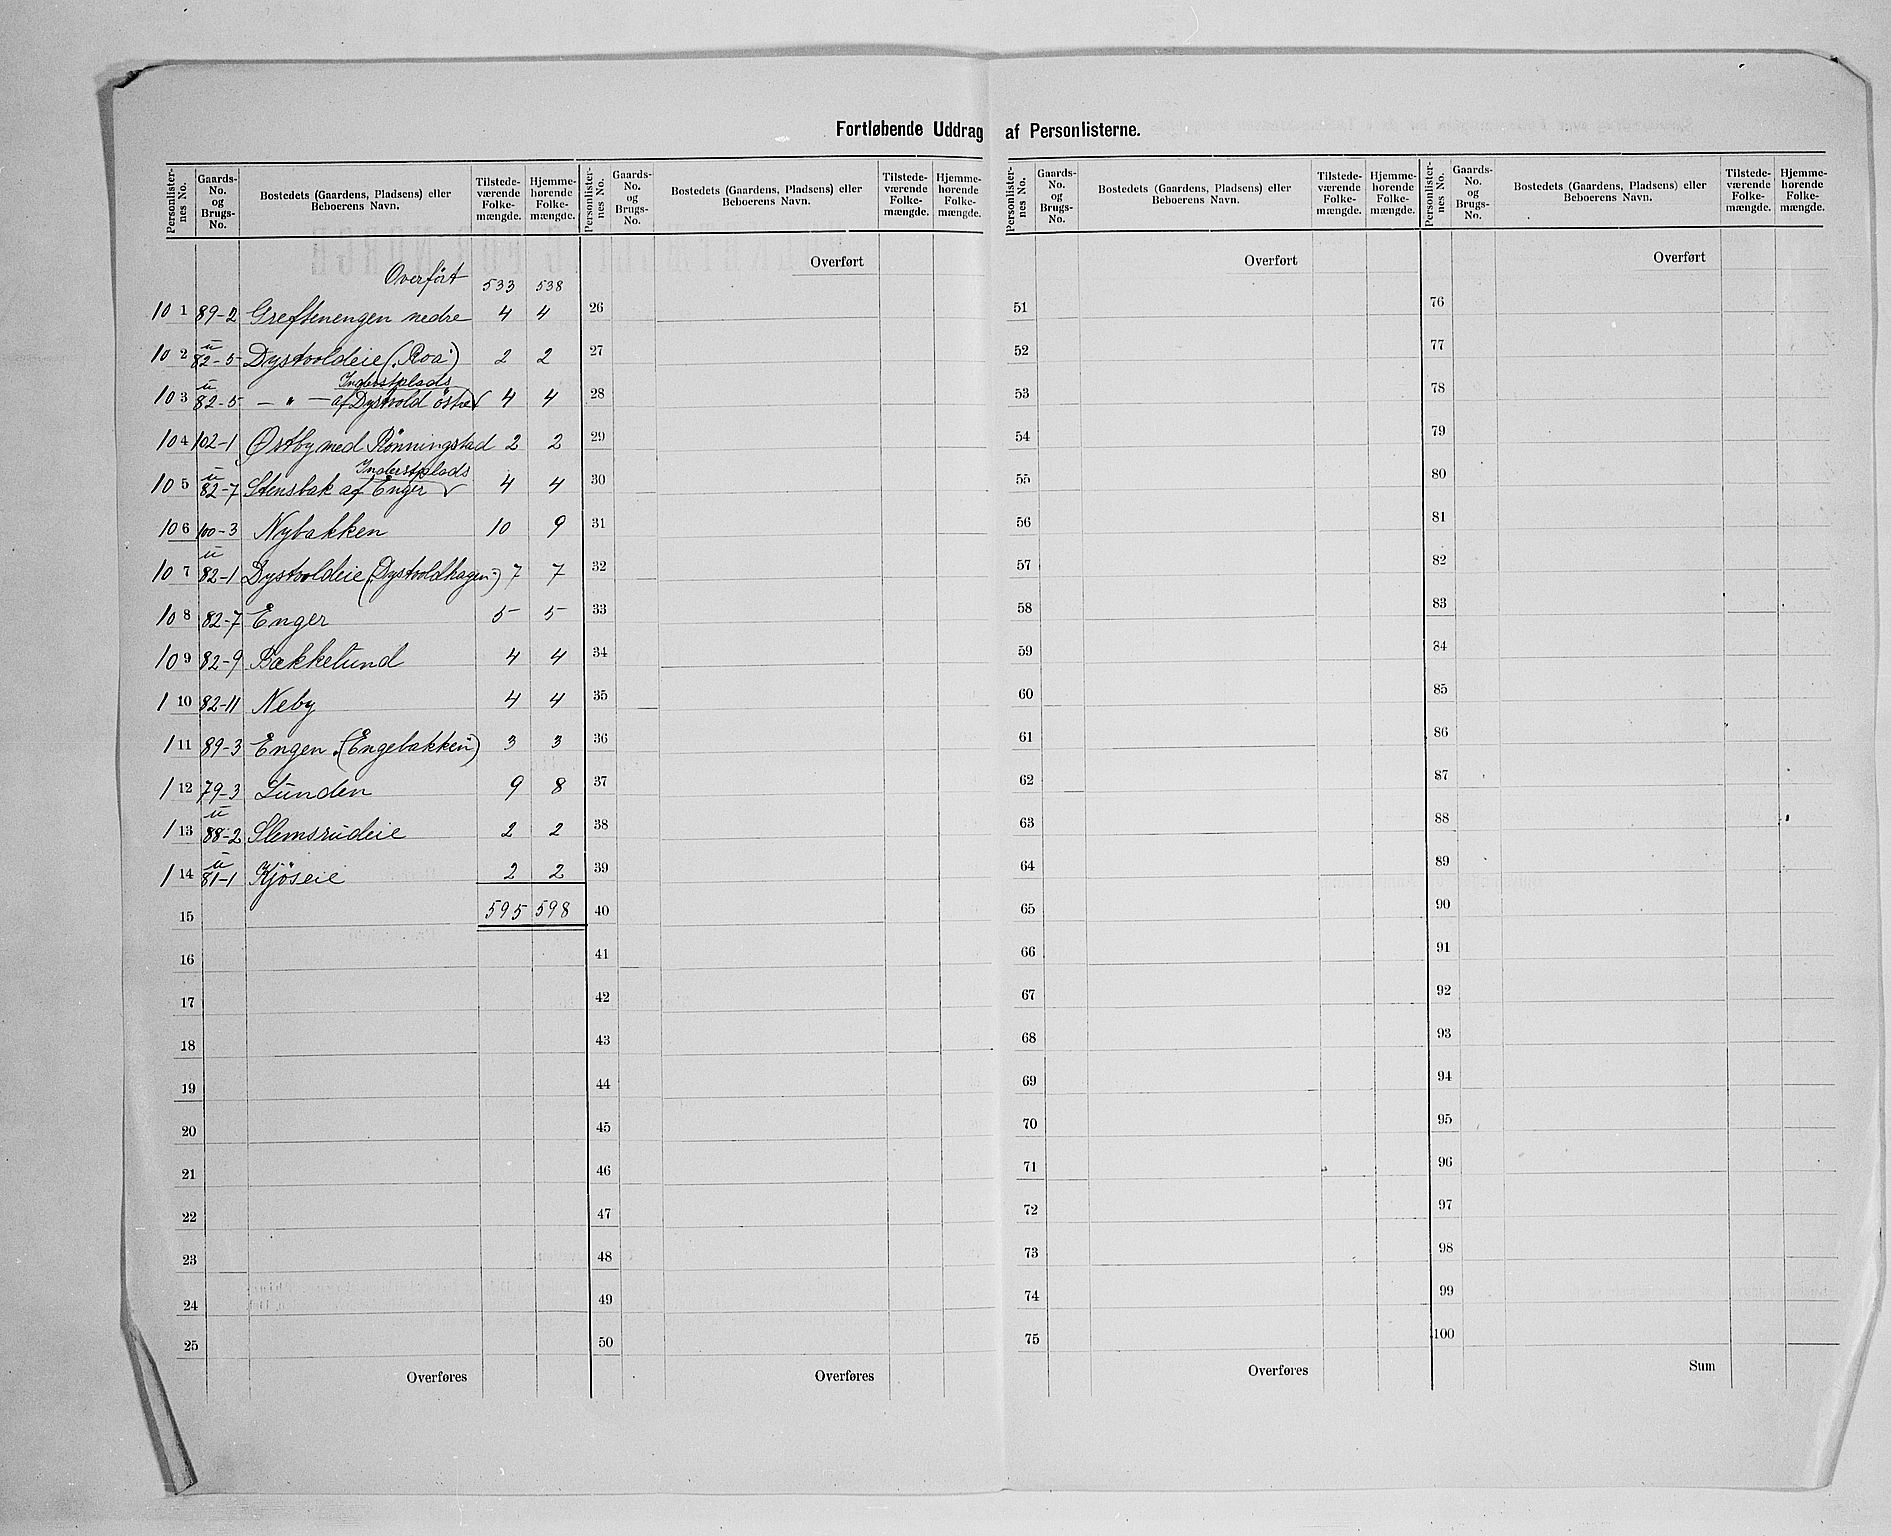 Fortløbende Uddrag af Personlisterne.
Personlisternes No. Gaards-No. og Brugs-No. Bostedets (Gaardens, Pladsens) eller Beboerens Navn. Tilstedeværende Folkemængde. Hjemmehørende Folkemængde. Personlisternes No. Gaards-No. og Brugs-No. Bostedets (Gaardens, Pladsens) eller Beboerens Navn. Tilstedeværende Folkemængde. Hjemmehørende Folkemængde. Personlisternes No. Gaards-No. og Brugs-No. Bostedets (Gaardens, Pladsens) eller Beboerens Navn. Tilstedeværende Folkemængde. Hjemmehørende Folkemængde. Personlisternes No. Gaards-No. og Brugs-No. Bostedets (Gaardens, Pladsens) eller Beboerens Navn. Tilstedeværende Folkemængde. Hjemmehørende Folkemængde.
Overført 533 538 Overført Overført Overført
101 89-2 Greftenengen nedre 4 4 26 51 76
102 u 82-5 Dystvoldeie (: Roa:) 2 2 27 52 77
103 u 82-5 — " — Inderstplads af Dystvold östre 4 4 28 53 78
104 102-1 Østby med Rönningstad 2 2 29 54 79
105 u 82-7 Stensbak Inderstplads af Enger 4 4 30 55 80
106 100-3 Nybakken 10 9 31 56 81
107 u 82-1 Dystvoldeie (: Dystvoldhagen:) 7 7 32 57 82
108 82-7 Enger 5 5 33 58 83
109 82-9 Bækkelund 4 4 34 59 84
110 82-11 Neby 4 4 35 60 85
111 89-3 Engen (: Engebakken:) 3 3 36 61 86
112 79-3 Lunden 9 8 37 62 87
113 u 88-2 Slemsrudeie 2 2 38 63 88
114 u 81-1 Kjöseie 2 2 39 64 89
15 595 598 40 65 90
16 41 66 91
17 42 67 92
18 43 68 93
19 44 69 94
20 45 70 95
21 46 71 96
22 47 72 97
23 48 73 98
24 49 74 99
25 50 75 100
Overføres Overføres Overføres Sum